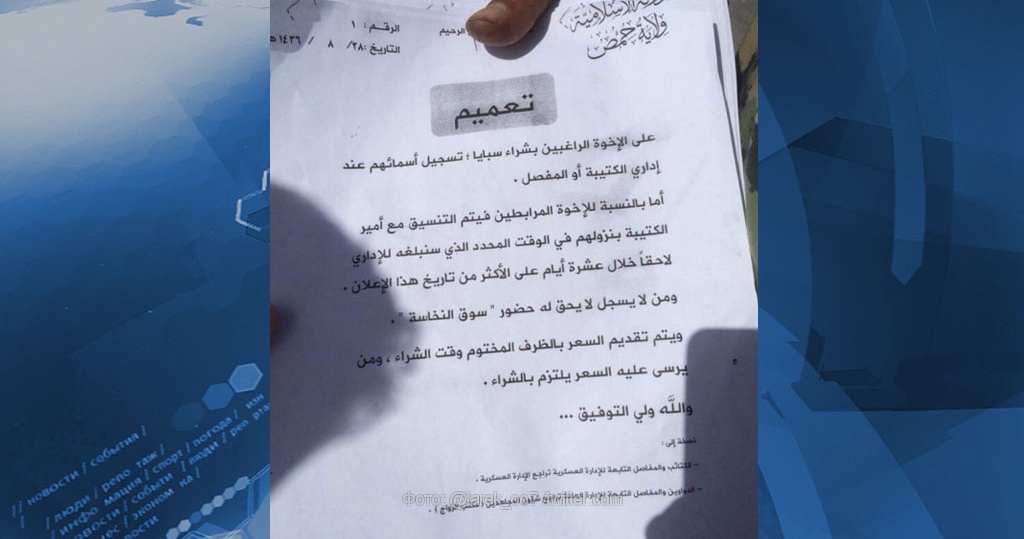 الإسلامية
ولاية حمص
الرحيم
الرقم : ١
التاريخ : ٢٨/ ٨ / ١٤٣٦ هـ
تعميم
على الإخوة الراغبين بشراء سبايا ؛ تسجيل أسمائهم عند
إداري الكتيبة أو المفصل .
أما بالنسبة للإخوة المرابطين فيتم التنسيق مع أمير
الكتيبة بنزولهم في الوقت المحدد الذي سنبلغه للإداري
لاحقاً خلال عشرة أيام على الأكثر من تاريخ هذا الإعلان .
ومن لا يسجل لا يحق له حضور " سوق النخاسة " .
ويتم تقديم السعر بالظرف المختوم وقت الشراء ، ومن
يرسى عليه السعر يلتزم بالشراء .
واللَّه ولي التوفيق ...
نسخة إلى :
- الكتائب والمفاصل التابعة للإدارة العسكرية تراجع الإدارة العسكرية .
- الدواوين والمفاصل التابعة للإدارة
Фото:
// новости / события /
/ люди / репо таж /
/ спорт / погода /
новости / событи
/ люди / реп
эконом